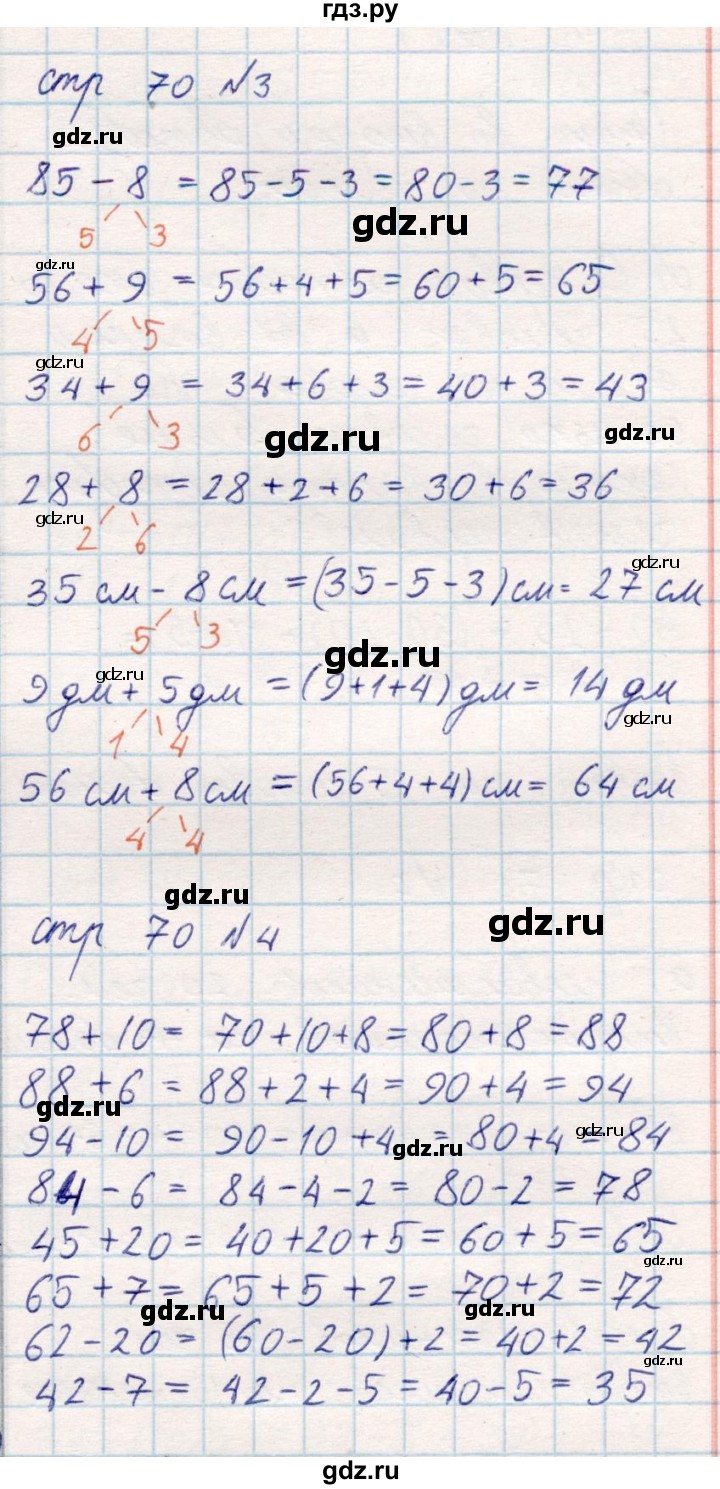 гдз.ру
стр 70 №3
gdz.ru
85 - 8 = 85-5-3=80-3=77
gdz.ru
5 3
gdz.ru
56+ 9 = 56+4+5=60+5=65
4 5
gdz.ru
34+9 = 34+6+3=40+3=43
6 3
gdz.ru
gdz.ru
28+ 8 = 28+2+6= 30+6=36
gdz.ru
2 6
gdz.ru
35 см - 8 см =(35-5-3)см= 27 см
5 3
gdz.ru
gdz.ru
9 дм+ 5 дм =(9+1+4)дм= 14 дм
gdz.ru
1 4
56 см+ 8 см =(56+4+4)см= 64 см
4 4
gdz.ru
стр 70 №4
gdz.ru
78+10= 70+10+8=80+8=88
88+6 = 88+2+4=90+4=94
gdz.ru
94-10= 90-10+4 =80+4=84
gdz.ru
gdz.ru
84-6= 84-4-2= 80-2=78
45+20= 40+20+5=60+5=65
gdz.ru
65+7=65+5+2= 70+2=72
gdz.ru
gdz.ru
62-20=(60-20)+2=40+2=42
gdz.ru
42-7= 42-2-5=40-5=35
gdz.ru